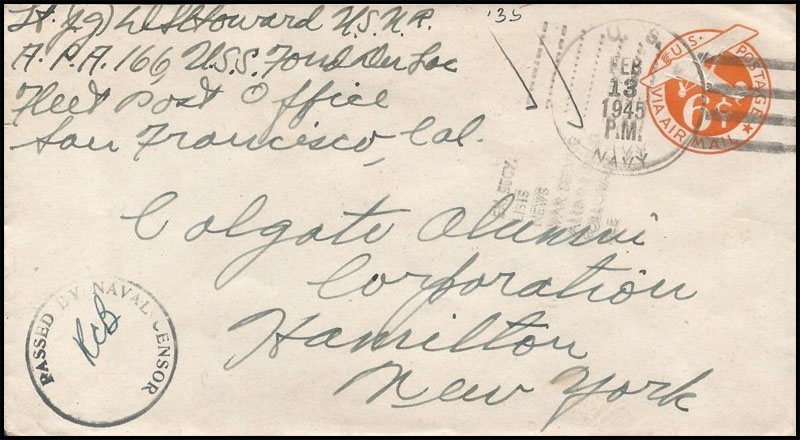 Lt. (jg) W S Howard U.S.N.R.
A.P.A. 166 U.S.S. Fond Du Lac
Fleet Post Office
San Francisco, Cal.
'35
U. S.
FEB
13
1945
P.M.
NAVY
U.S. POSTAGE
6¢
VIA AIR MAIL
SECY.
NEWS
Colgate Alumni
Corporation
Hamilton
New York
PASSED BY NAVAL CENSOR
RCB